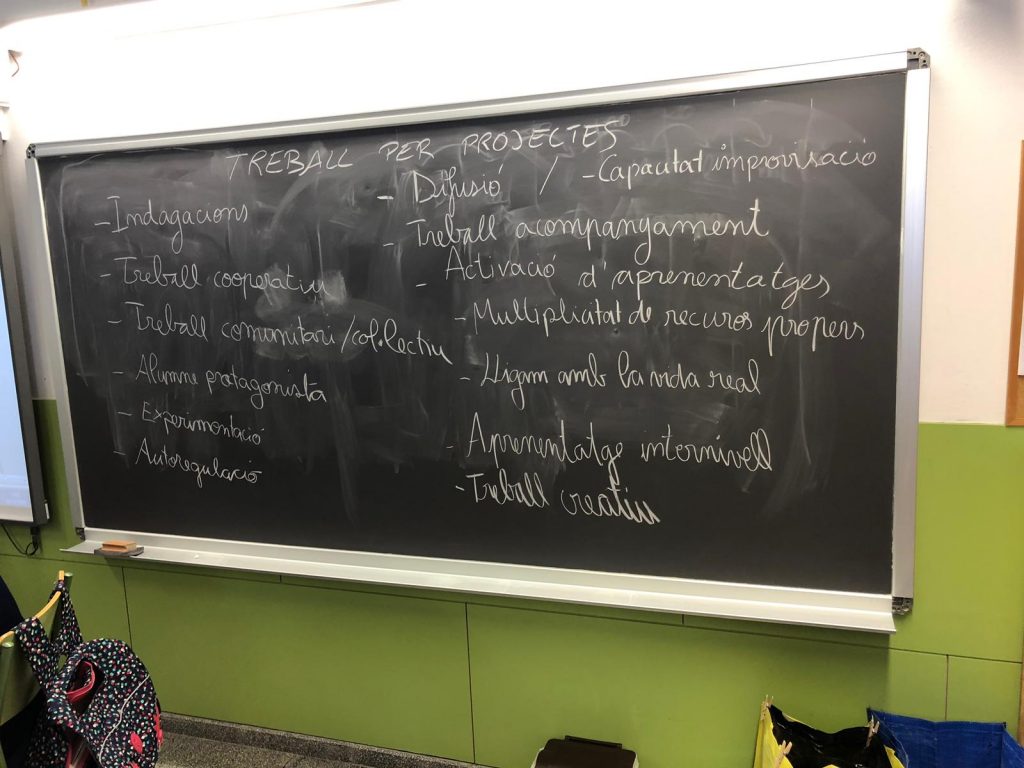 TREBALL PER PROJECTES
- Indagacions
- Treball cooperatiu
- Treball comunitari / col·lectiu
- Alumne protagonista
- Experimentació
- Autoregulació
- Difusió / - Capacitat improvisació
- Treball acompanyament
- Activació d'aprenentatges
- Multiplicitat de recursos propers
- Lligam amb la vida real
- Aprenentatge internivell
- Treball creatiu